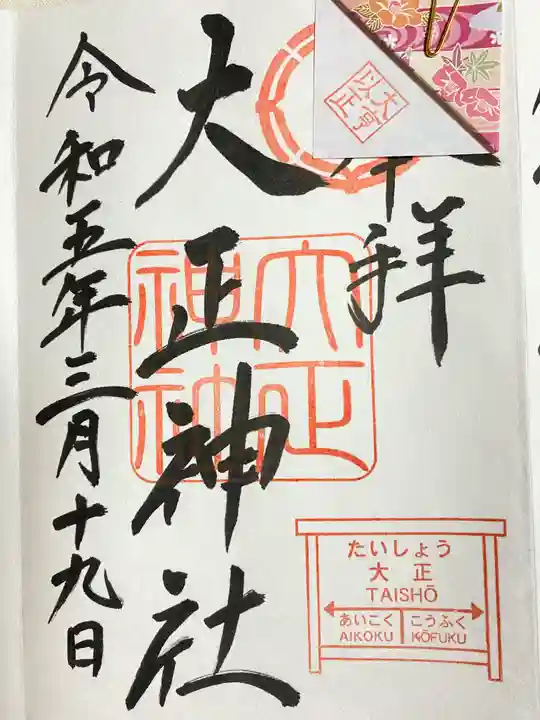 奉拝
大正神社
令和五年三月十九日
大正
神社
たいしょう
大正
TAISHŌ
あいこく
AIKOKU
こうふく
KŌFUKU